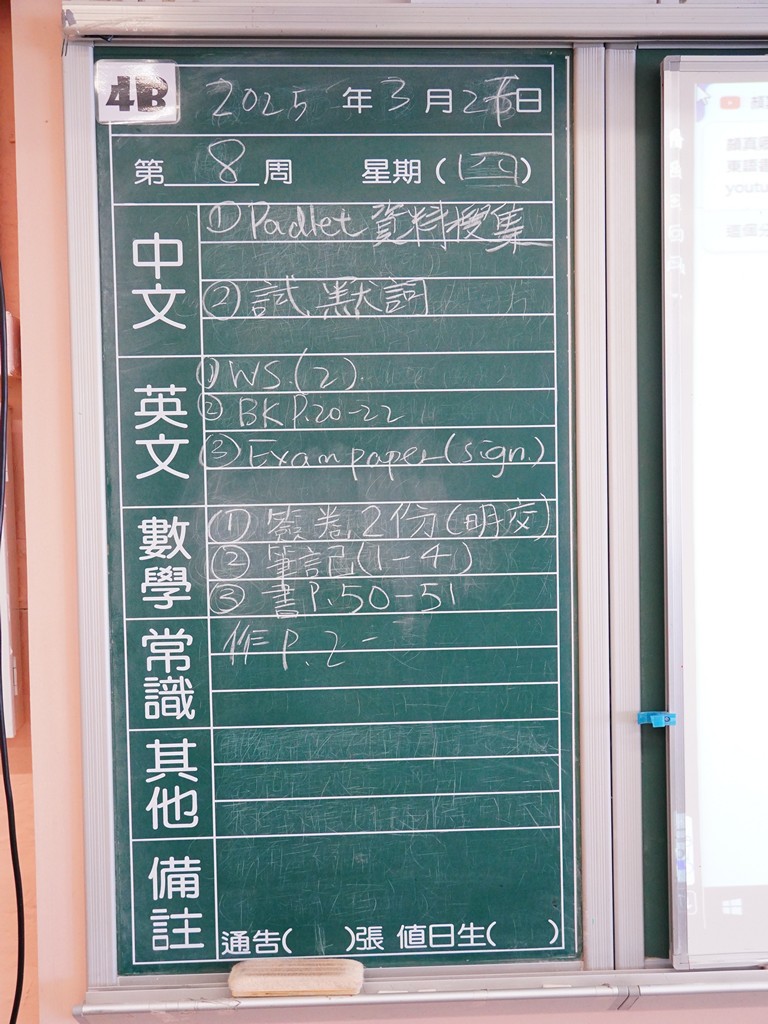 4B
2025 年 3 月 2 日
第 8 周 星期 (四)
中文
① Padlet 資料搜集
② 試默詞
英文
① WS.(2).
② BK P.20-22
③ Exam paper (sign.)
數學
① 簽卷2份(明交)
② 筆記(1-4)
③ 書P.50-51
常識
作P.2-
其他
備註
通告( )張 值日生( )
youtu